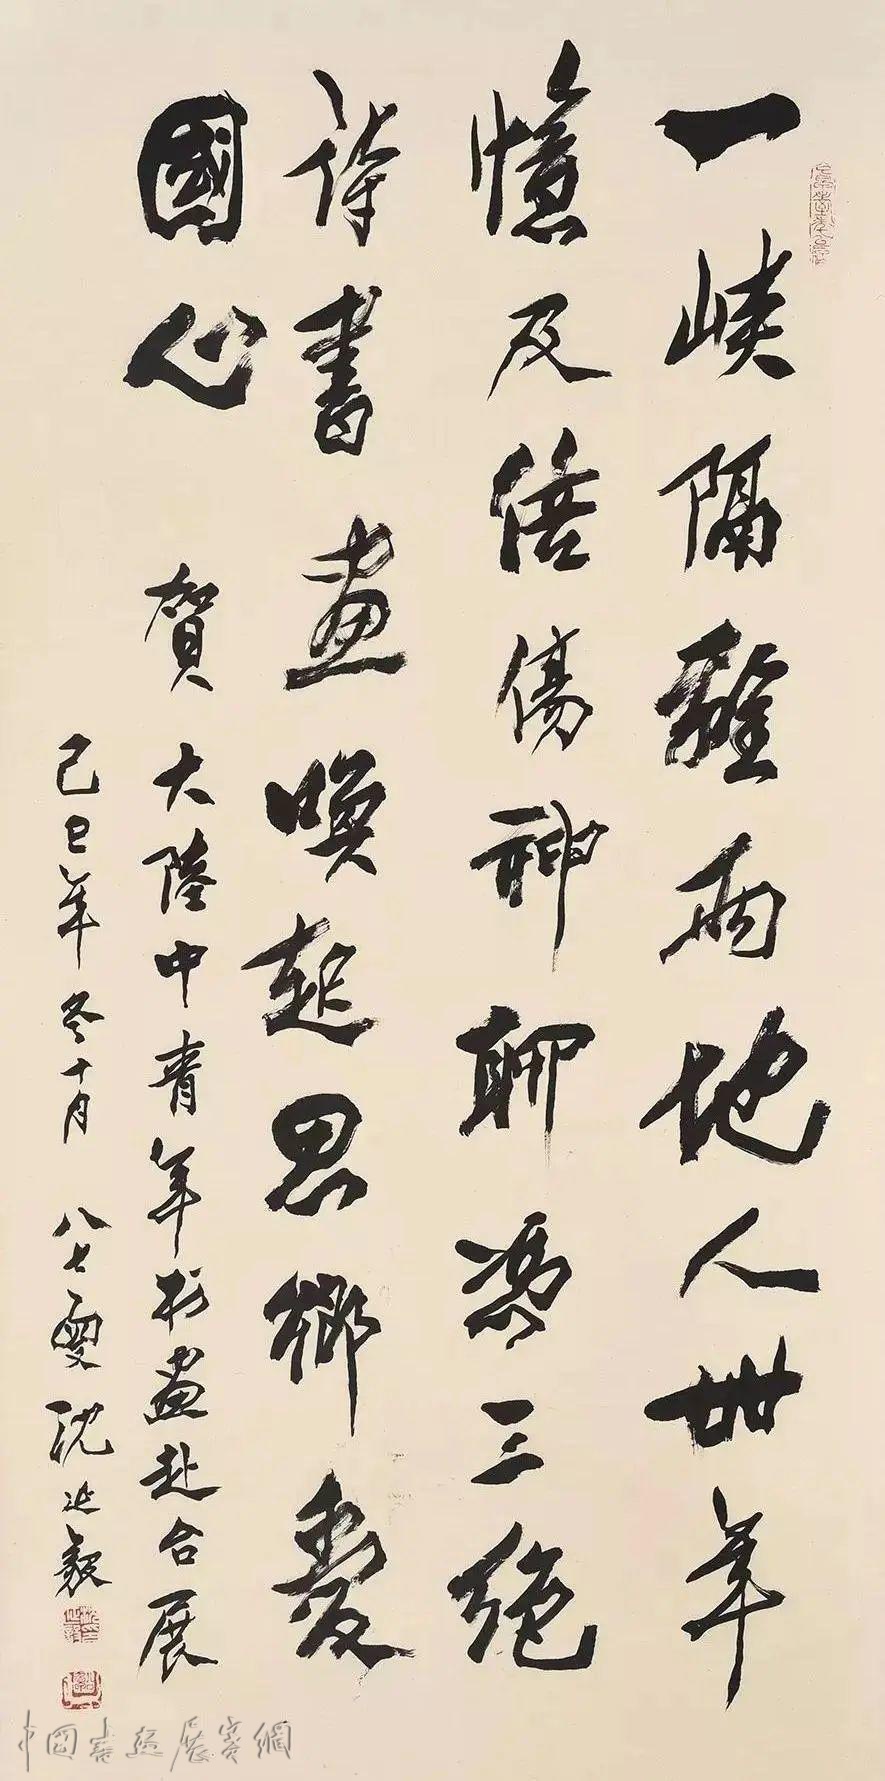 一峽隔離兩地人卌年
憶及倍傷神聊憑三絕
詩書畫喚起思鄉愛
國心 賀大陸中青年书畫赴台展
己巳年冬十月 八七叟沈延毅
中國書畫展賽網